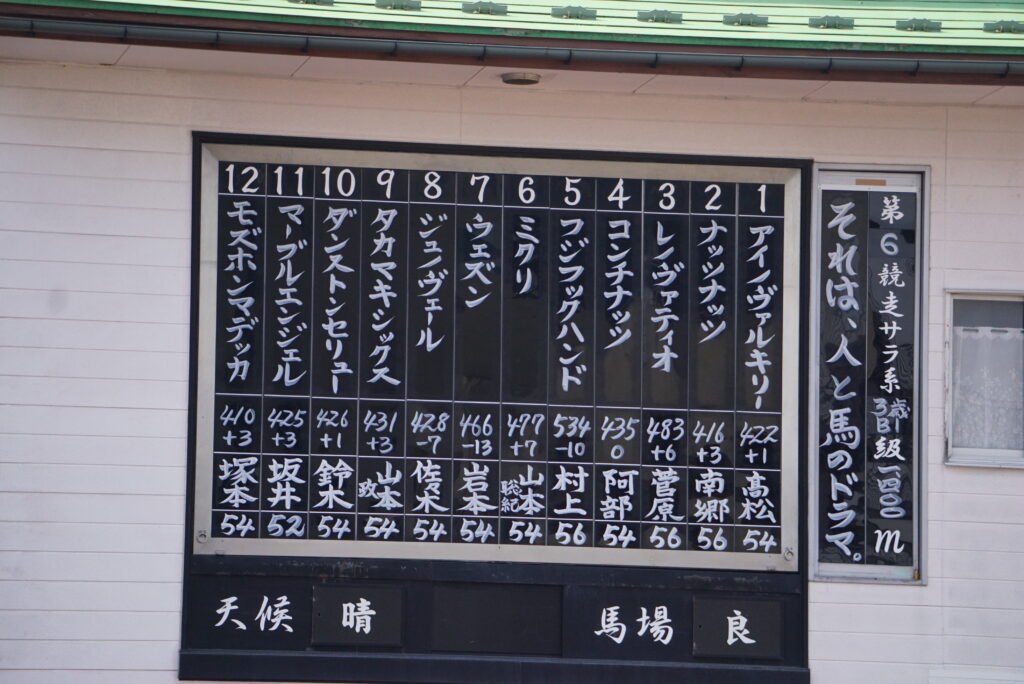 第6競走サラ系3歳B1級一四〇〇m
それは、人と馬のドラマ。
1 アイノヴァルキリー 422 +1 高松 54
2 ナッツナッツ 416 +3 南郷 56
3 レヴァティオ 483 +6 菅原 56
4 コンチナッツ 435 0 阿部 54
5 フジフックハンド 534 -10 村上 56
6 ミクリ 477 +7 山本聡紀 54
7 ウェズン 466 -13 岩本 54
8 ジュノヴェール 428 -7 佐々木 54
9 タカマキシックス 431 +3 山本政 54
10 ダンストンセリュー 426 +1 鈴木 54
11 マーブルエンジェル 425 +3 坂井 52
12 モズホンマデッカ 410 +3 塚本 54
天候 晴 馬場 良